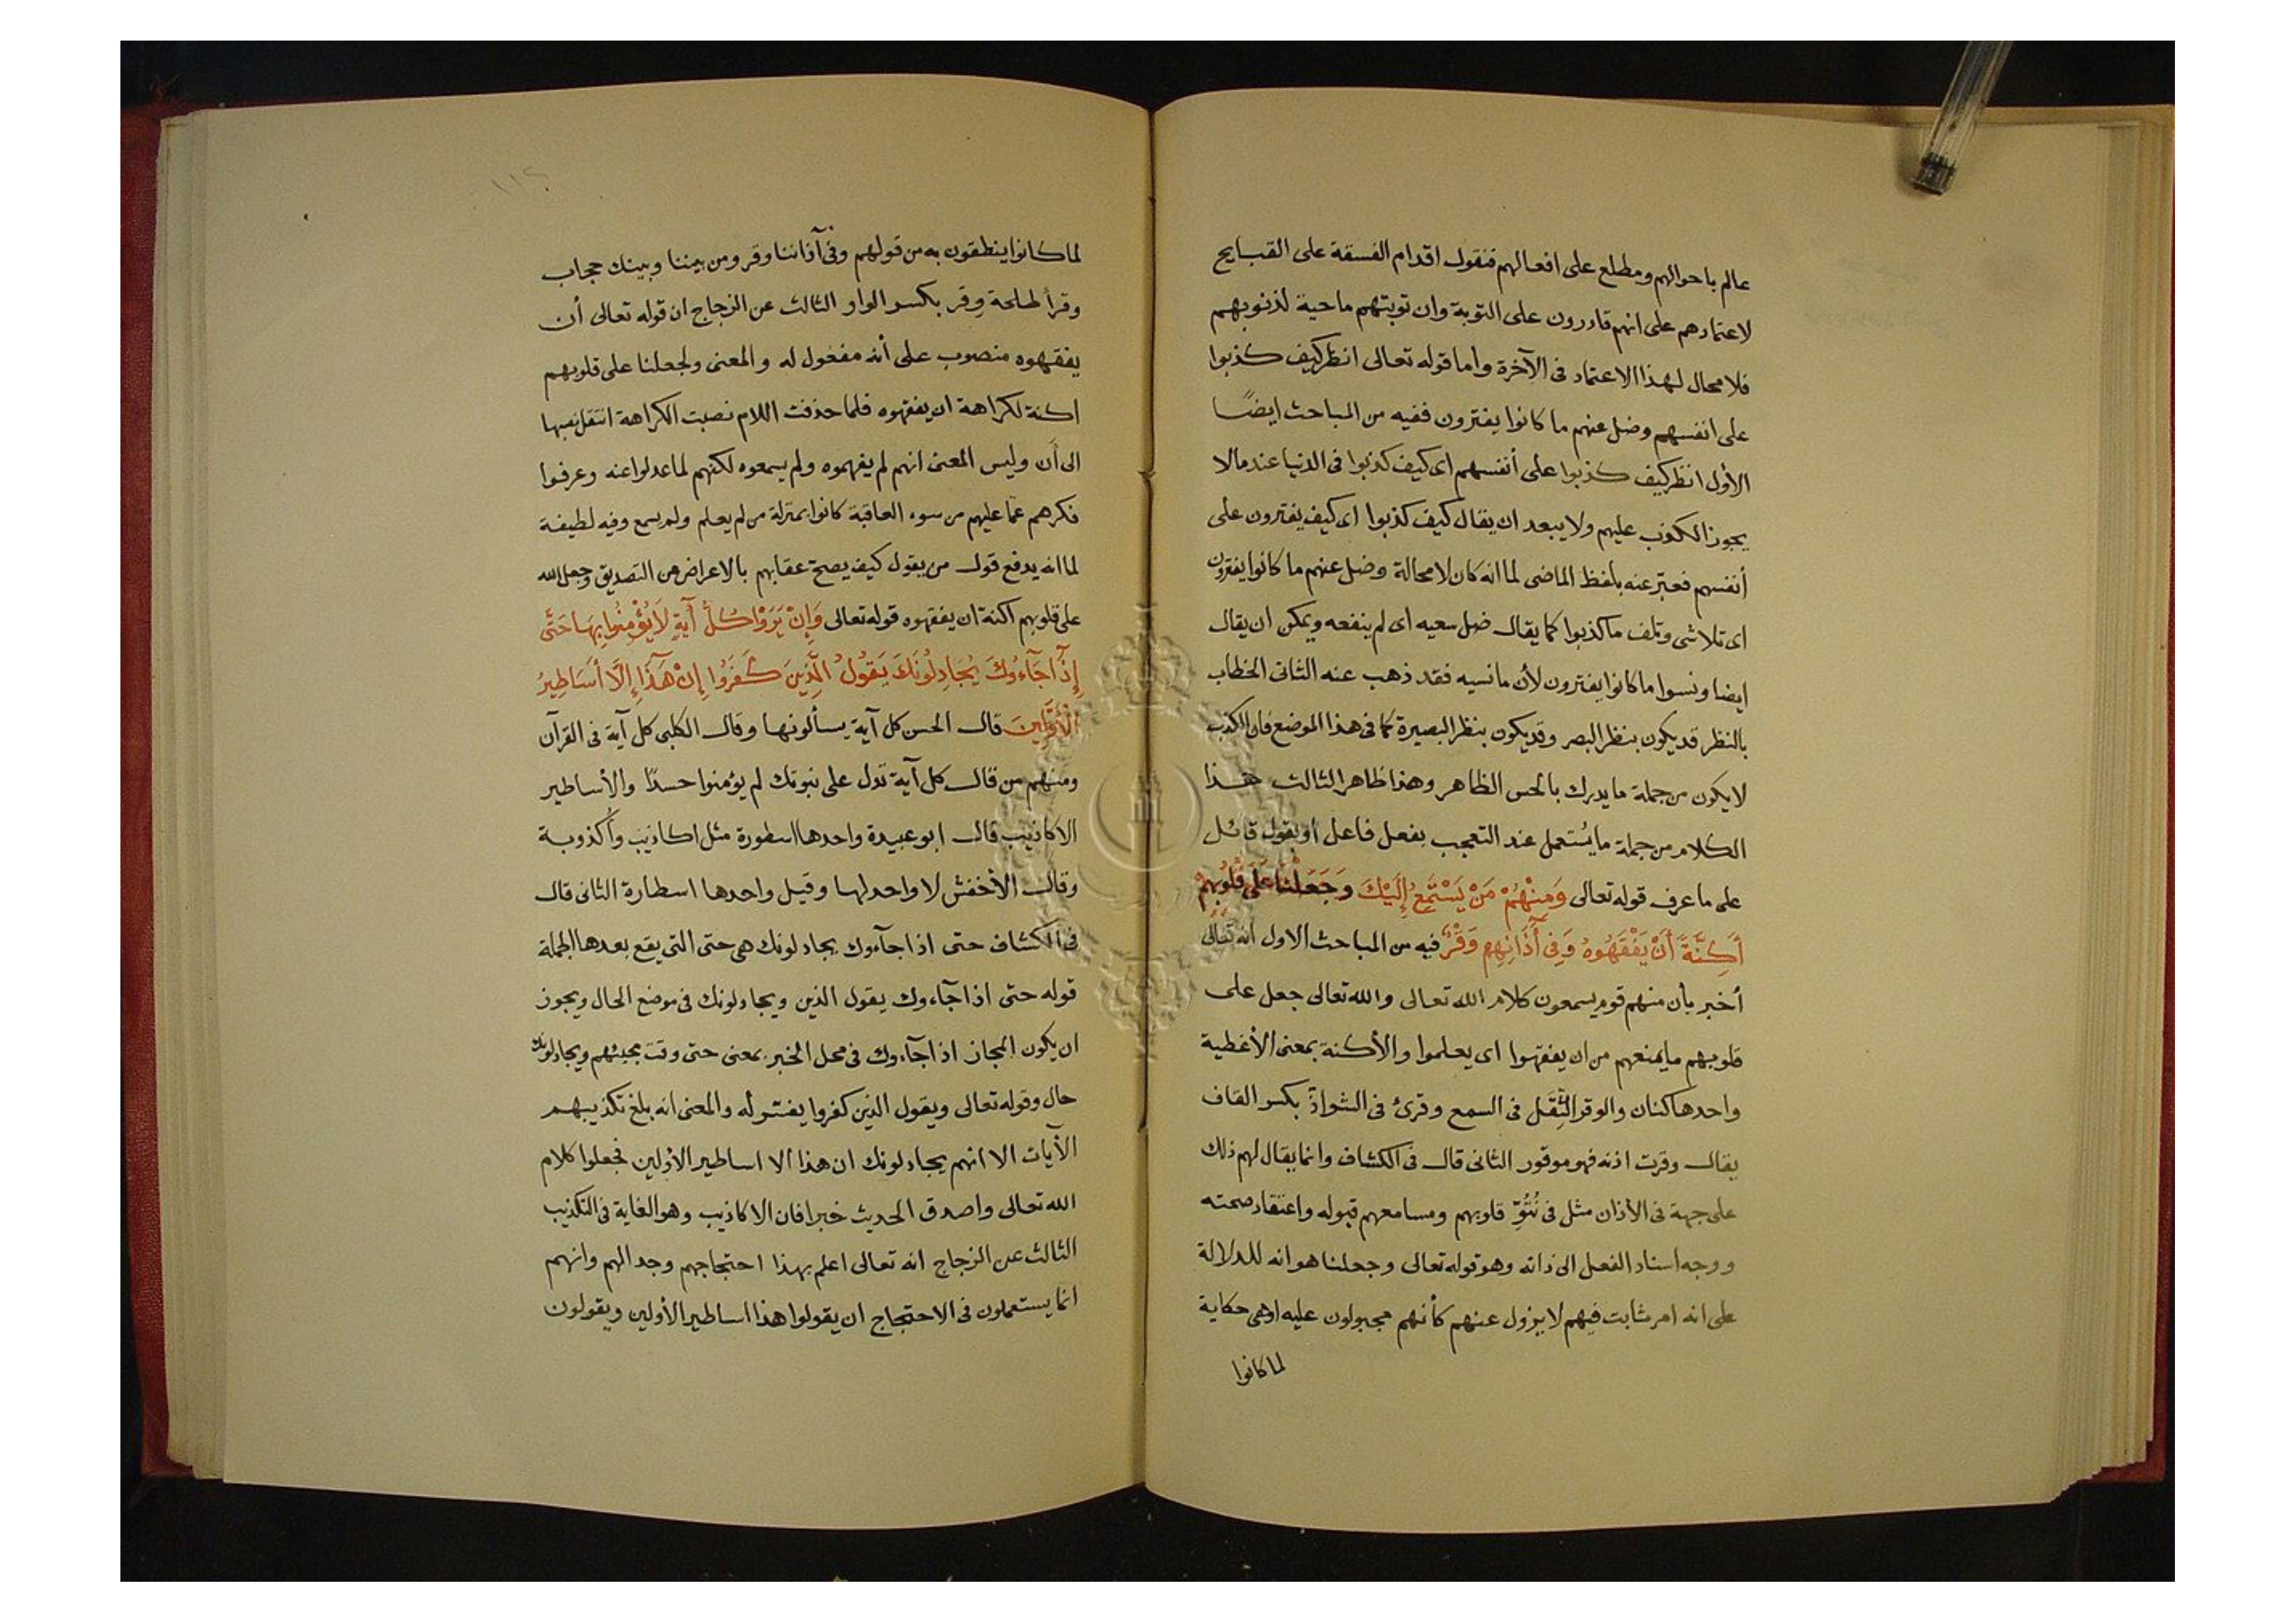 عالم باحوالهم ومطلع على افعالهم فنقول اقدام الفسقة على القبايح
لاعتمادهم على انهم قادرون على التوبة وان توبتهم ماحية لذنوبهم
فلا محال لهذا الاعتماد فى الآخرة وأما قوله تعالى انظر كيف كذبوا
على انفسهم وضل عنهم ما كانوا يفترون ففيه من المباحث ايضًا
الأول انظر كيف كذبوا على أنفسهم اى كيف كذبوا فى الدنيا عند مالا
يجوز الكذب عليهم ولا يبعد ان يقال كيف كذبوا اى كيف يفترون على
أنفسهم فعبّر عنه بلفظ الماضى لما انه كان لا محالة وضل عنهم ما كانوا يفترون
اى تلاشى وتلف ما كذبوا كما يقال ضل سعيه اى لم ينفعه ويمكن ان يقال
ايضا ونسوا ما كانوا يفترون لأن ما نسيه فقد ذهب عنه الثانى الخطاب
بالنظر قد يكون بنظر البصر وقد يكون بنظر البصيرة كما فى هذا الموضع فان الكذب
لا يكون من جملة ما يدرك بالحس الظاهر وهذا ظاهر الثالث هذا
الكلام من جملة ما يُستعمل عند التعجب بفعل فاعل او بقول قائل
على ما عرف قوله تعالى وَمِنْهُمْ مَنْ يَسْتَمِعُ إِلَيْكَ وَجَعَلْنَا عَلَى قُلُوبِهِمْ
أَكِنَّةً أَنْ يَفْقَهُوهُ وَفِى أَذَانِهِم وَقْرٌ فيه من المباحث الاول انه تعالى
أخبر بأن منهم قوم يسمعون كلام الله تعالى والله تعالى جعل على
قلوبهم ما يمنعهم من ان يفقهوا اى يعلموا والأكنة بمعنى الأغطية
واحدها كنان والوقر الثِقَل فى السمع وقرئ فى الشواذّ بكسر القاف
يقال وقرت اذنه فهو موقور الثانى قال فى الكشاف وانما يقال لهم ذلك
على جهة فى الأذان مثل فى نُبُوِّ قلوبهم ومسامعهم قبوله واعتقاد صحته
ووجه اسناد الفعل الى ذاته وهو قوله تعالى وجعلنا هو انه للدلالة
على انه امر ثابت فيهم لا يزول عنهم كأنهم مجبولون عليه اوهى حكاية
لما كانوا
١١٢
لما كانوا ينطقون به من قولهم وفى آذاننا وقر ومن بيننا وبينك حجاب
وقرأ طلحة وِقر بكسر الواو الثالث عن الزجاج ان قوله تعالى أن
يفقهوه منصوب على أنه مفعول له والمعنى ولجعلنا على قلوبهم
اكنة لكراهة ان يفقهوه فلما حذفت اللام نصبت الكراهة انتقل نصبها
الى أن وليس المعنى انهم لم يفهموه ولم يسمعوه لكنهم لما عدلوا عنه وعرفوا
فكرهم عما عليهم من سوء العاقبة كانوا بمنزلة من لم يعلم ولم يسمع وفيه لطيفة
لما انه يدفع قول من يقول كيف يصح عقابهم بالاعراض عن التصديق وجعل الله
على قلوبهم اكنة ان يفقهوه قوله تعالى وَإِنْ يَرَوْا كُلَّ آيَةٍ لَا يُؤْمِنُوا بِهَا حَتَّى
إِذَا جَآءُوكَ يُجَادِلُونَكَ يَقُولُ الَّذِينَ كَفَرُوا إِنْ هَذَا إِلَّا أَسَاطِيرُ
الْأَوَّلِينَ قال الحسن كل آية يسألونها وقال الكلبى كل آية فى القرآن
ومنهم من قال كل آية تدل على نبوتك لم يؤمنوا حسدًا والأساطير
الاكاذيب قال ابو عبيدة واحدها اسطورة مثل اكاذيب وأُكذوبة
وقال الأخفش لا واحد لها وقيل واحدها اسطارة الثانى قال
فى الكشاف حتى اذا جآءوك يجادلونك هى حتى التى يقع بعدها الجملة
قوله حتى اذا جآءوك يقول الذين ويجادلونك فى موضع الحال ويجوز
ان يكون المجاز اذا جآءوك فى محل الخبر بمعنى حتى وقت مجيئهم ويجادلونك
حال وقوله تعالى ويقول الذين كفروا يفسر له والمعنى انه بلغ تكذيبهم
الآيات الا انهم يجادلونك ان هذا الا اساطير الأولين فجعلوا كلام
الله تعالى واصدق الحديث خبرا فان الاكاذيب وهو الغاية فى التكذيب
الثالث عن الزجاج انه تعالى اعلم بهذا احتجاجهم وجدالهم وانهم
انما يستعملون فى الاحتجاج ان يقولوا هذا اساطير الأولين ويقولون